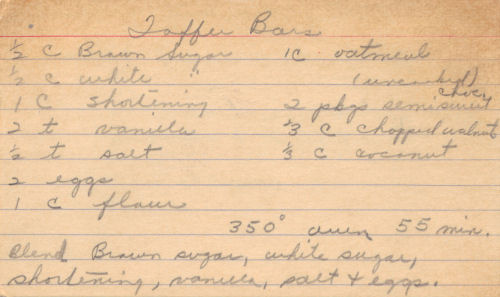 Toffee Bars
½ C Brown Sugar 1C oatmeal
½ C white " (uncooked)
1 C shortening 2 pkgs semisweet choc
2 t vanilla ⅓ C chopped walnut
½ t salt ⅓ C coconut
2 eggs
1 C flour
350° oven 55 min.
Blend Brown sugar, white sugar,
shortening, vanilla, salt + eggs.